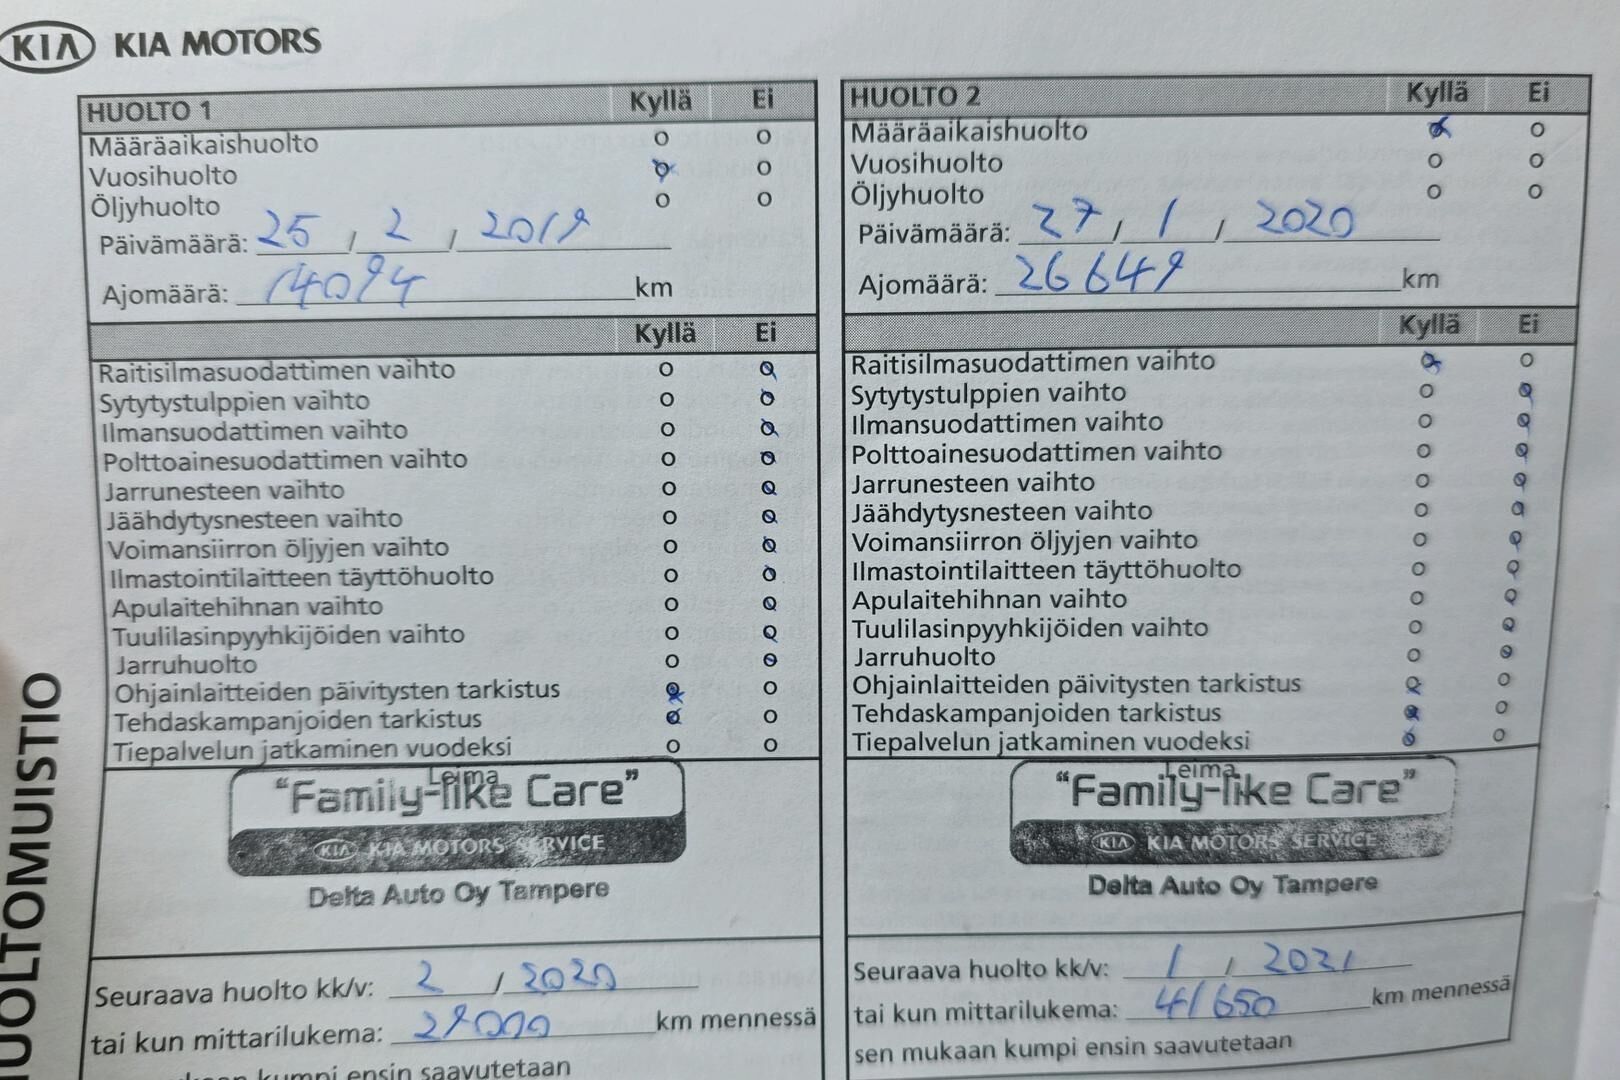 KIA KIA MOTORS
HUOLTO 1 Kyllä Ei
Määräaikaishuolto
Vuosihuolto
Öljyhuolto
Päivämäärä: 25 / 2 / 2019
Ajomäärä: 14094 km
Kyllä Ei
Raitisilmasuodattimen vaihto
Sytytystulppien vaihto
Ilmansuodattimen vaihto
Polttoainesuodattimen vaihto
Jarrunesteen vaihto
Jäähdytysnesteen vaihto
Voimansiirron öljyjen vaihto
Ilmastointilaitteen täyttöhuolto
Apulaitehihnan vaihto
Tuulilasinpyyhkijöiden vaihto
Jarruhuolto
Ohjainlaitteiden päivitysten tarkistus
Tehdaskampanjoiden tarkistus
Tiepalvelun jatkaminen vuodeksi
Leima
"Family-like Care"
KIA KIA MOTORS SERVICE
Delta Auto Oy Tampere
Seuraava huolto kk/v: 2 / 2020
tai kun mittarilukema: 29000 km mennessä
mukaan kumpi ensin saavutetaan
HUOLTO 2 Kyllä Ei
Määräaikaishuolto
Vuosihuolto
Öljyhuolto
Päivämäärä: 27 / 1 / 2020
Ajomäärä: 26649 km
Kyllä Ei
Raitisilmasuodattimen vaihto
Sytytystulppien vaihto
Ilmansuodattimen vaihto
Polttoainesuodattimen vaihto
Jarrunesteen vaihto
Jäähdytysnesteen vaihto
Voimansiirron öljyjen vaihto
Ilmastointilaitteen täyttöhuolto
Apulaitehihnan vaihto
Tuulilasinpyyhkijöiden vaihto
Jarruhuolto
Ohjainlaitteiden päivitysten tarkistus
Tehdaskampanjoiden tarkistus
Tiepalvelun jatkaminen vuodeksi
Leima
"Family-like Care"
KIA KIA MOTORS SERVICE
Delta Auto Oy Tampere
Seuraava huolto kk/v: 1 / 2021
tai kun mittarilukema: 41650 km mennessä
sen mukaan kumpi ensin saavutetaan
HUOLTOMUISTIO